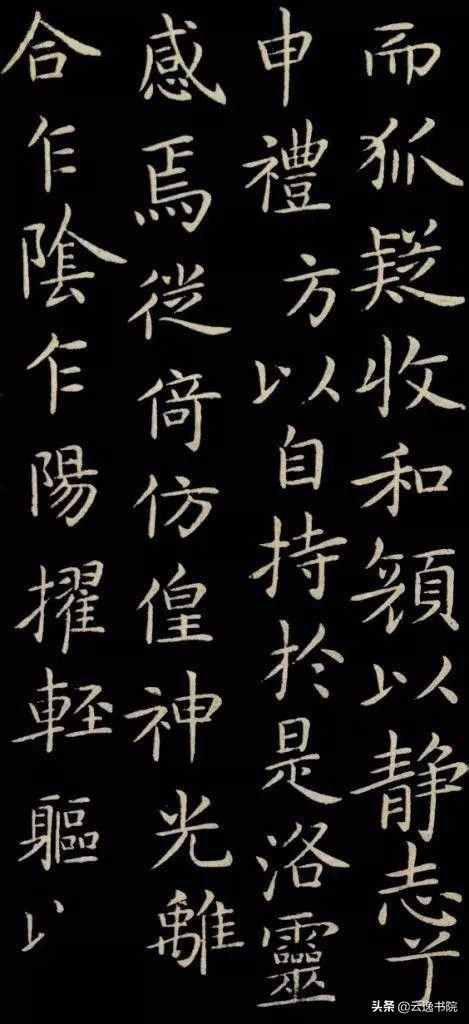 而狐疑收和顔以静志兮
申禮方以自持於是洛靈
感焉徙倚仿偟神光離
合乍陰乍陽擢輕軀以
头条 @云逸书院